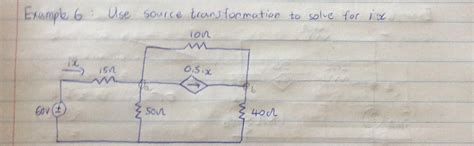 Example 6: Use source transformation to solve for ix
10Ω
ix
15Ω
0.5ix
a
b
60V
50Ω
40Ω